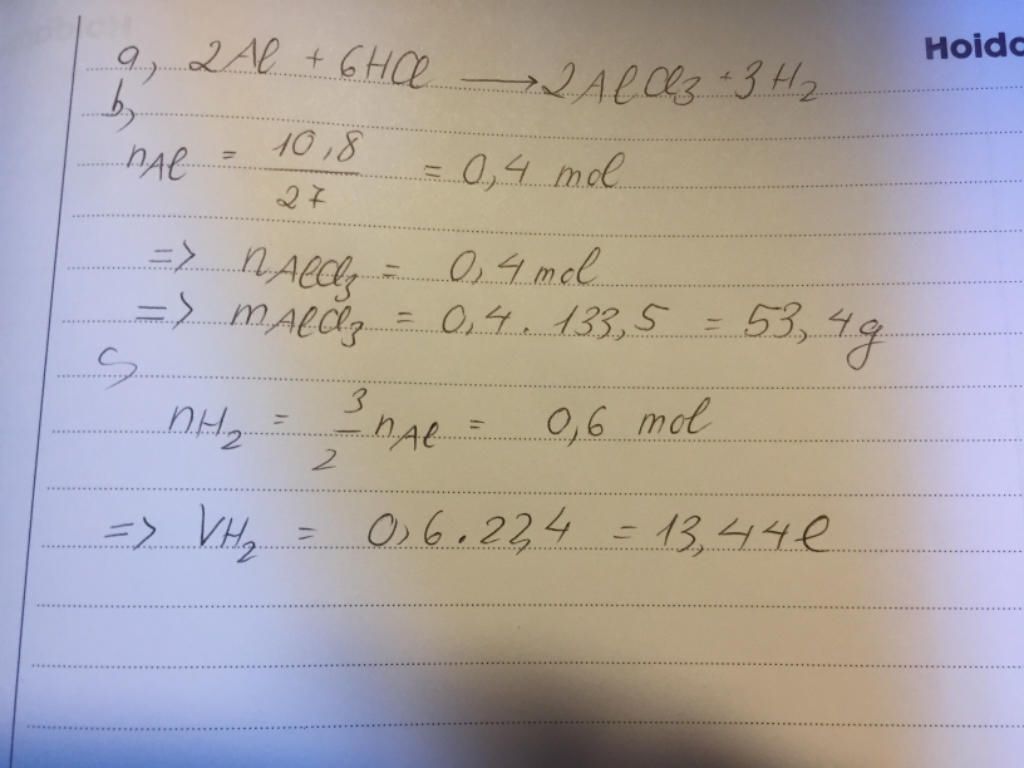 Hoidc
a, 2Al + 6HCl → 2AlCl3 + 3H2
b,
nAl = 10,8 / 27 = 0,4 mol
=> nAlCl3 = 0,4 mol
=> mAlCl3 = 0,4 . 133,5 = 53,4g
c,
nH2 = 3/2 nAl = 0,6 mol
=> VH2 = 0,6 . 22,4 = 13,44l